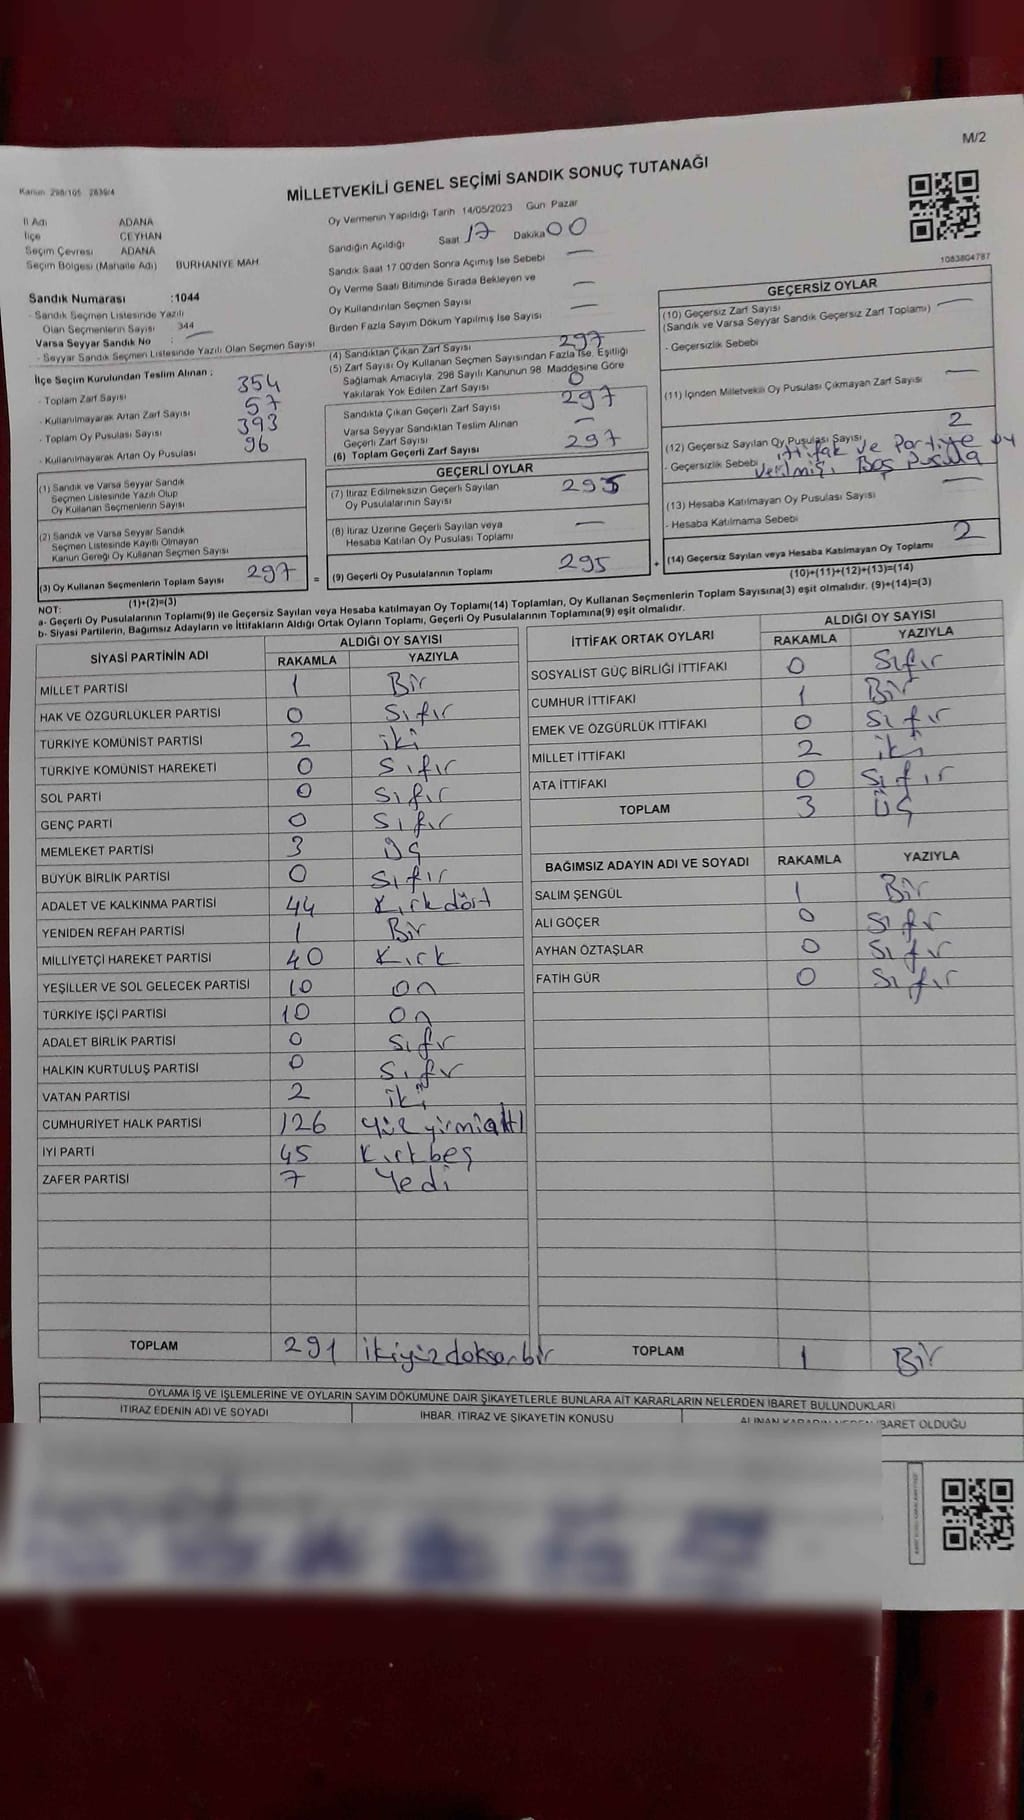 M/2
Kanun 298/105 2839/4
MİLLETVEKİLİ GENEL SEÇİMİ SANDIK SONUÇ TUTANAĞI
İl Adı ADANA
İlçe CEYHAN
Seçim Çevresi ADANA
Seçim Bölgesi (Mahalle Adı) BURHANIYE MAH.
Sandık Numarası :1044
- Sandık Seçmen Listesinde Yazılı
Olan Seçmenlerin Sayısı 344
Varsa Seyyar Sandık No :
- Seyyar Sandık Seçmen Listesinde Yazılı Olan Seçmen Sayısı
İlçe Seçim Kurulundan Teslim Alınan :
- Toplam Zarf Sayısı 354
- Kullanılmayarak Artan Zarf Sayısı 57
- Toplam Oy Pusulası Sayısı 393
- Kullanılmayarak Artan Oy Pusulası 96
(1) Sandık ve Varsa Seyyar Sandık
Seçmen Listesinde Yazılı Olup
Oy Kullanan Seçmenlerin Sayısı
(2) Sandık ve Varsa Seyyar Sandık
Seçmen Listesinde Kayıtlı Olmayan
Kanun Gereği Oy Kullanan Seçmen Sayısı
(3) Oy Kullanan Seçmenlerin Toplam Sayısı 297 =
(1)+(2)=(3)
Oy Vermenin Yapıldığı Tarih 14/05/2023 Gün Pazar
Sandığın Açıldığı Saat 17 Dakika 00
Sandık Saat 17.00'den Sonra Açımış İse Sebebi —
Oy Verme Saati Bitiminde Sırada Bekleyen ve
Oy Kullandırılan Seçmen Sayısı —
Birden Fazla Sayım Döküm Yapılmış İse Sayısı —
(4) Sandıktan Çıkan Zarf Sayısı 297
(5) Zarf Sayısı Oy Kullanan Seçmen Sayısından Fazla İse, Eşitliği
Sağlamak Amacıyla, 298 Sayılı Kanunun 98. Maddesine Göre
Yakılarak Yok Edilen Zarf Sayısı 0
Sandıkta Çıkan Geçerli Zarf Sayısı 297
Varsa Seyyar Sandıktan Teslim Alınan
Geçerli Zarf Sayısı —
(6) Toplam Geçerli Zarf Sayısı 297
GEÇERLİ OYLAR
(7) İtiraz Edilmeksizin Geçerli Sayılan
Oy Pusulalarının Sayısı 295
(8) İtiraz Üzerine Geçerli Sayılan veya
Hesaba Katılan Oy Pusulası Toplamı —
(9) Geçerli Oy Pusulalarının Toplamı 295 +
1083804787
GEÇERSİZ OYLAR
(10) Geçersiz Zarf Sayısı
(Sandık ve Varsa Seyyar Sandık Geçersiz Zarf Toplamı) —
- Geçersizlik Sebebi
(11) İçinden Milletvekili Oy Pusulası Çıkmayan Zarf Sayısı —
(12) Geçersiz Sayılan Oy Pusulası Sayısı 2
- Geçersizlik Sebebi ittifak ve Partiye oy
verilmiş, Boş Pusula
(13) Hesaba Katılmayan Oy Pusulası Sayısı —
- Hesaba Katılmama Sebebi
(14) Geçersiz Sayılan veya Hesaba Katılmayan Oy Toplamı 2
(10)+(11)+(12)+(13)=(14)
NOT:
a- Geçerli Oy Pusulalarının Toplamı(9) ile Geçersiz Sayılan veya Hesaba katılmayan Oy Toplamı(14) Toplamları, Oy Kullanan Seçmenlerin Toplam Sayısına(3) eşit olmalıdır. (9)+(14)=(3)
b- Siyasi Partilerin, Bağımsız Adayların ve İttifakların Aldığı Ortak Oyların Toplamı, Geçerli Oy Pusulalarının Toplamına(9) eşit olmalıdır.
SİYASİ PARTİNİN ADI ALDIĞI OY SAYISI
RAKAMLA YAZIYLA
MİLLET PARTİSİ 1 Bir
HAK VE ÖZGÜRLÜKLER PARTİSİ 0 Sıfır
TÜRKİYE KOMÜNİST PARTİSİ 2 iki
TÜRKİYE KOMÜNİST HAREKETİ 0 Sıfır
SOL PARTİ 0 Sıfır
GENÇ PARTİ 0 Sıfır
MEMLEKET PARTİSİ 3 Üç
BÜYÜK BİRLİK PARTİSİ 0 Sıfır
ADALET VE KALKINMA PARTİSİ 44 Kırkdört
YENİDEN REFAH PARTİSİ 1 Bir
MİLLİYETÇİ HAREKET PARTİSİ 40 Kırk
YEŞİLLER VE SOL GELECEK PARTİSİ 10 on
TÜRKİYE İŞÇİ PARTİSİ 10 On
ADALET BİRLİK PARTİSİ 0 Sıfır
HALKIN KURTULUŞ PARTİSİ 0 Sıfır
VATAN PARTİSİ 2 iki
CUMHURİYET HALK PARTİSİ 126 Yüzyirmialtı
İYİ PARTİ 45 Kırkbeş
ZAFER PARTİSİ 7 Yedi
TOPLAM 291 ikiyüzdoksanbir
İTTİFAK ORTAK OYLARI ALDIĞI OY SAYISI
RAKAMLA YAZIYLA
SOSYALİST GÜÇ BİRLİĞİ İTTİFAKI 0 Sıfır
CUMHUR İTTİFAKI 1 Bir
EMEK VE ÖZGÜRLÜK İTTİFAKI 0 Sıfır
MİLLET İTTİFAKI 2 iki
ATA İTTİFAKI 0 Sıfır
TOPLAM 3 Üç
BAĞIMSIZ ADAYIN ADI VE SOYADI RAKAMLA YAZIYLA
SALİM ŞENGÜL 1 Bir
ALİ GÖÇER 0 Sıfır
AYHAN ÖZTAŞLAR 0 Sıfır
FATİH GÜR 0 Sıfır
TOPLAM 1 Bir
OYLAMA İŞ VE İŞLEMLERİNE VE OYLARIN SAYIM DÖKÜMÜNE DAİR ŞİKAYETLERLE BUNLARA AİT KARARLARIN NELERDEN İBARET BULUNDUKLARI
İTİRAZ EDENİN ADI VE SOYADI İHBAR, İTİRAZ VE ŞİKAYETİN KONUSU ALINAN KARARIN NEDEN İBARET OLDUĞU